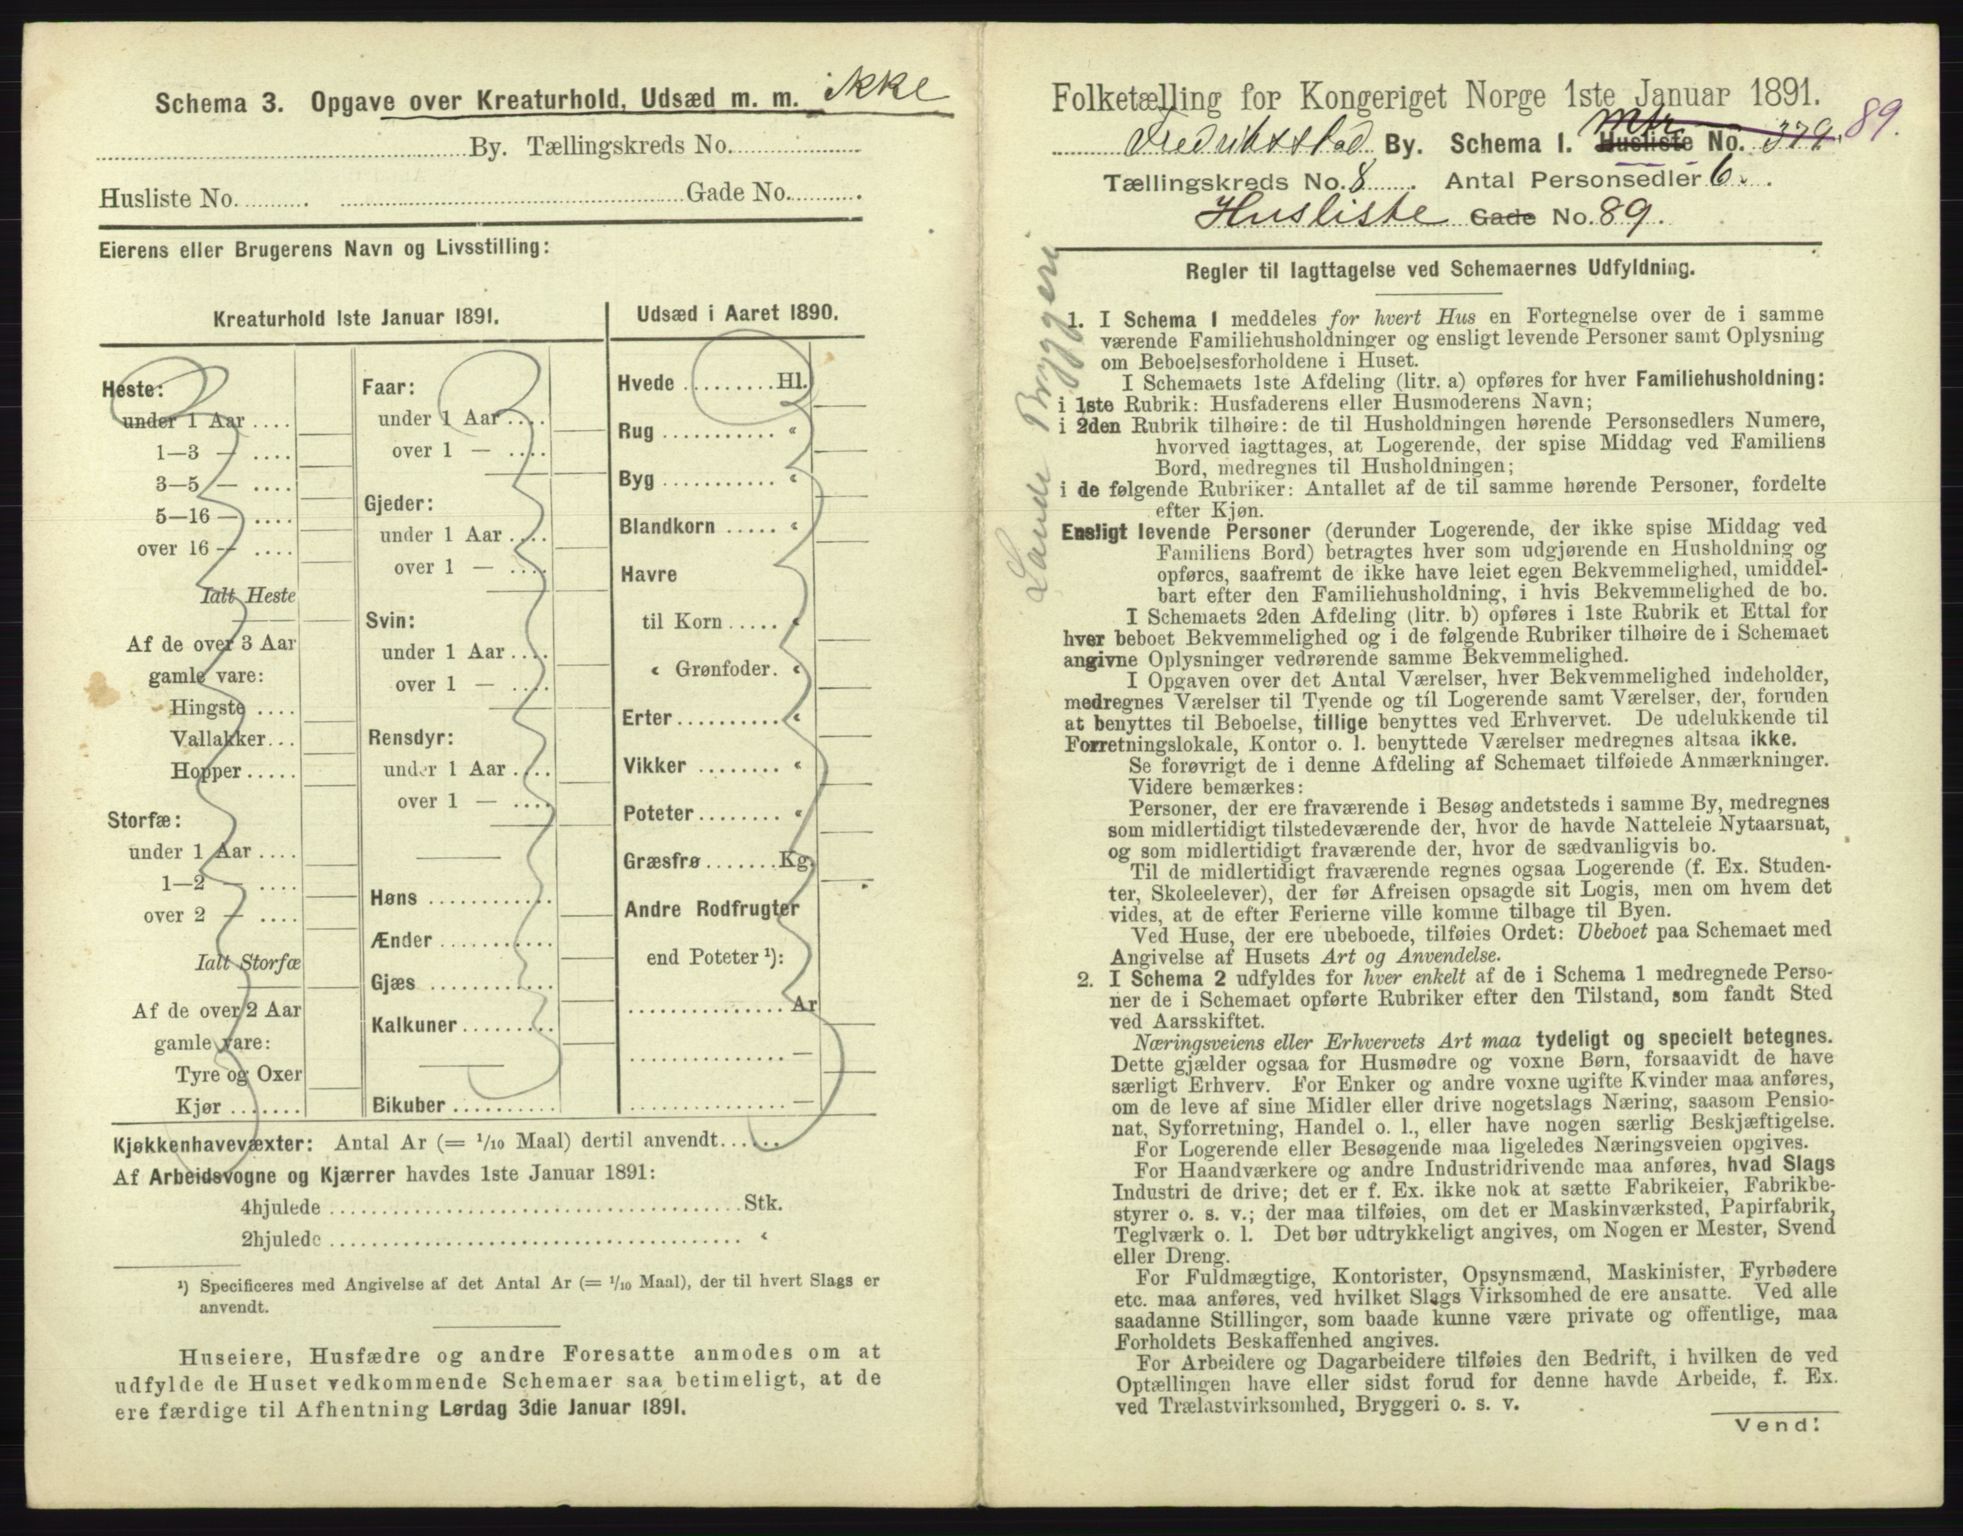 Schema 3. Opgave over Kreaturhold, Udsæd m. m. ikke
By. Tællingskreds No.
Husliste No. Gade No.
Eierens eller Brugerens Navn og Livsstilling:
Kreaturhold 1ste Januar 1891.
Heste:
under 1 Aar
1—3 —
3—5 —
5—16 —
over 16 —
Ialt Heste
Af de over 3 Aar
gamle vare:
Hingste
Vallakker
Hopper
Storfæ:
under 1 Aar
1—2 —
over 2 —
Ialt Storfæ
Af de over 2 Aar
gamle vare:
Tyre og Oxer
Kjør
Faar:
under 1 Aar
over 1 —
Gjeder:
under 1 Aar
over 1 —
Svin:
under 1 Aar
over 1 —
Rensdyr:
under 1 Aar
over 1 —
Høns
Ænder
Gjæs
Kalkuner
Bikuber
Udsæd i Aaret 1890.
Hvede Hl.
Rug "
Byg "
Blandkorn "
Havre
til Korn "
" Grønfoder. "
Erter "
Vikker "
Poteter "
Græsfrø Kg.
Andre Rodfrugter
end Poteter ¹):
Ar
—
—
Kjøkkenhavevæxter: Antal Ar (= 1/10 Maal) dertil anvendt
Af Arbeidsvogne og Kjærrer havdes 1ste Januar 1891:
4hjulede Stk.
2hjulede "
¹) Specificeres med Angivelse af det Antal Ar (= 1/10 Maal), der til hvert Slags er
anvendt.
Huseiere, Husfædre og andre Foresatte anmodes om at
udfylde de Huset vedkommende Schemaer saa betimeligt, at de
ere færdige til Afhentning Lørdag 3die Januar 1891.
Folketælling for Kongeriget Norge 1ste Januar 1891.
Fredriksstad By. Schema I. Mtr Husliste No. 379. 89.
Tællingskreds No. 8. Antal Personsedler 6.
Husliste Gade No. 89.
Lande Bryggeri
Regler til Iagttagelse ved Schemaernes Udfyldning.
1. I Schema 1 meddeles for hvert Hus en Fortegnelse over de i samme
værende Familiehusholdninger og ensligt levende Personer samt Oplysning
om Beboelsesforholdene i Huset.
I Schemaets 1ste Afdeling (litr. a) opføres for hver Familiehusholdning:
i 1ste Rubrik: Husfaderens eller Husmoderens Navn;
i 2den Rubrik tilhøire: de til Husholdningen hørende Personsedlers Numere,
hvorved iagttages, at Logerende, der spise Middag ved Familiens
Bord, medregnes til Husholdningen;
i de følgende Rubriker: Antallet af de til samme hørende Personer, fordelte
efter Kjøn.
Ensligt levende Personer (derunder Logerende, der ikke spise Middag ved
Familiens Bord) betragtes hver som udgjørende en Husholdning og
opføres, saafremt de ikke have leiet egen Bekvemmelighed, umiddel-
bart efter den Familiehusholdning, i hvis Bekvemmelighed de bo.
I Schemaets 2den Afdeling (litr. b) opføres i 1ste Rubrik et Ettal for
hver beboet Bekvemmelighed og i de følgende Rubriker tilhøire de i Schemaet
angivne Oplysninger vedrørende samme Bekvemmelighed.
I Opgaven over det Antal Værelser, hver Bekvemmelighed indeholder,
medregnes Værelser til Tyende og til Logerende samt Værelser, der, foruden
at benyttes til Beboelse, tillige benyttes ved Erhvervet. De udelukkende til
Forretningslokale, Kontor o. l. benyttede Værelser medregnes altsaa ikke.
Se forøvrigt de i denne Afdeling af Schemaet tilføiede Anmærkninger.
Videre bemærkes:
Personer, der ere fraværende i Besøg andetsteds i samme By, medregnes
som midlertidigt tilstedeværende der, hvor de havde Natteleie Nytaarsnat,
og som midlertidigt fraværende der, hvor de sædvanligvis bo.
Til de midlertidigt fraværende regnes ogsaa Logerende (f. Ex. Studen-
ter, Skoleelever), der før Afreisen opsagde sit Logis, men om hvem det
vides, at de efter Ferierne ville komme tilbage til Byen.
Ved Huse, der ere ubeboede, tilføies Ordet: Ubeboet paa Schemaet med
Angivelse af Husets Art og Anvendelse.
2. I Schema 2 udfyldes for hver enkelt af de i Schema 1 medregnede Perso-
ner de i Schemaet opførte Rubriker efter den Tilstand, som fandt Sted
ved Aarsskiftet.
Næringsveiens eller Erhvervets Art maa tydeligt og specielt betegnes.
Dette gjælder ogsaa for Husmødre og voxne Børn, forsaavidt de have
særligt Erhverv. For Enker og andre voxne ugifte Kvinder maa anføres,
om de leve af sine Midler eller drive nogetslags Næring, saasom Pensio-
nat, Syforretning, Handel o. l., eller have nogen særlig Beskjæftigelse.
For Logerende eller Besøgende maa ligeledes Næringsveien opgives.
For Haandværkere og andre Industridrivende maa anføres, hvad Slags
Industri de drive; det er f. Ex. ikke nok at sætte Fabrikeier, Fabrikbe-
styrer o. s. v.; der maa tilføies, om det er Maskinværksted, Papirfabrik,
Teglværk o. l. Det bør udtrykkeligt angives, om Nogen er Mester, Svend
eller Dreng.
For Fuldmægtige, Kontorister, Opsynsmænd, Maskinister, Fyrbødere
etc. maa anføres, ved hvilket Slags Virksomhed de ere ansatte. Ved alle
saadanne Stillinger, som baade kunne være private og offentlige, maa
Forholdets Beskaffenhed angives.
For Arbeidere og Dagarbeidere tilføies den Bedrift, i hvilken de ved
Optællingen have eller sidst forud for denne havde Arbeide, f. Ex.
ved Trælastvirksomhed, Bryggeri o. s. v.
Vend!